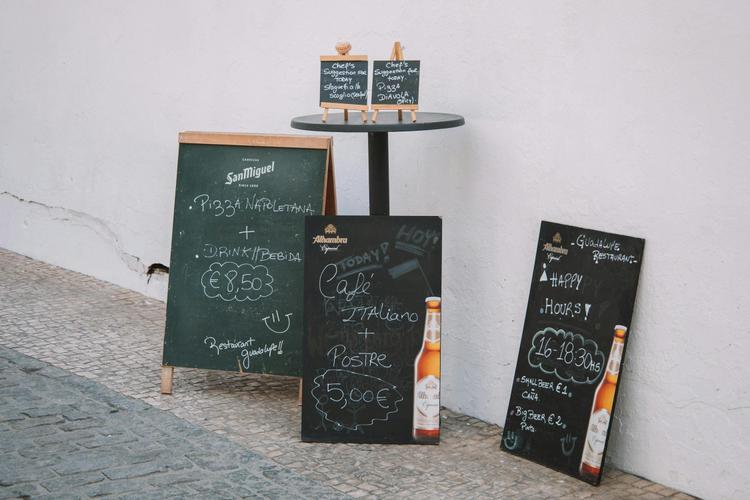 Chef's
Suggestion for
TODAY
scoglio
Chef's
Suggestion for
today
Pizza
DIAVOLA
San Miguel
SINCE 1890
. PIZZA NAPOLETANA
+
. DRINK//BEBIDA
€8,50
Restaurant
guadalupe!!
Alhambra
Especial
TODAY!
HOY!
Café
ITALIANO
+
POSTRE
5,00€
Alhambra
Especial
- GUADALUPE
RESTAURANT-
HAPPY
HOURS!
16-18:30HS
. SMALL BEER €1
CAÑA.
. BIG BEER €2